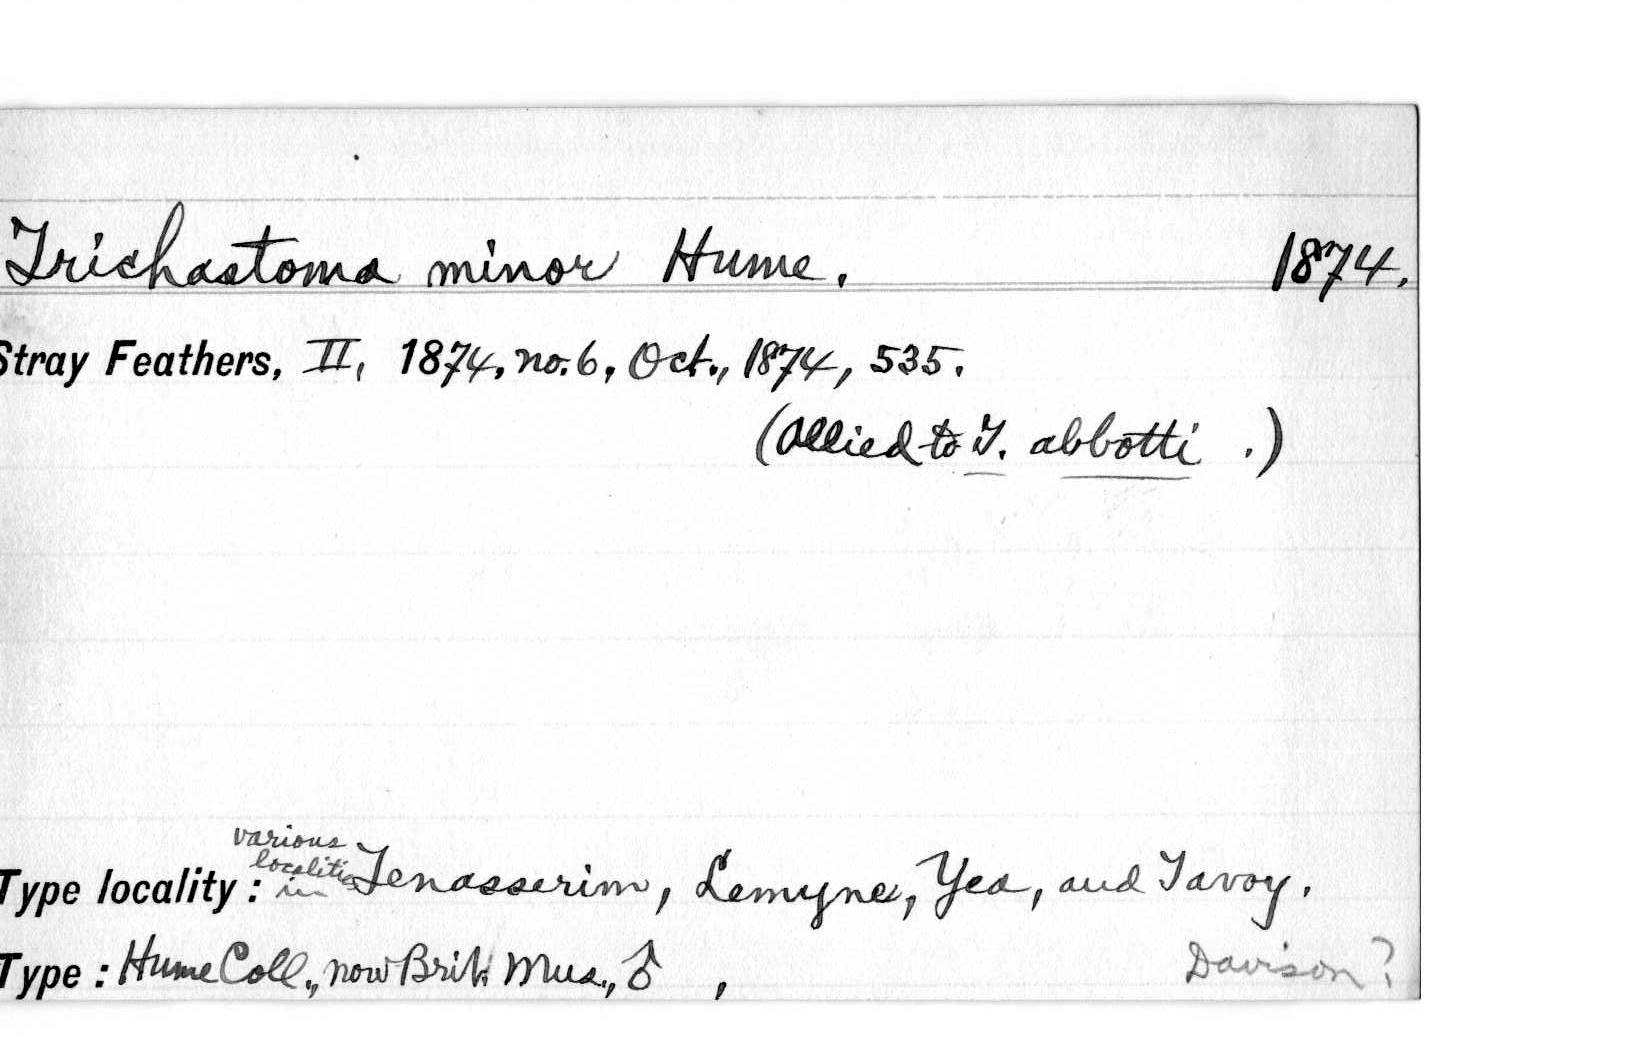 Trichastoma minor Hume. 1874.
Stray Feathers, II, 1874, no. 6, Oct., 1874, 535.
(allied to T. abbotti .)
various
localities
Type locality: in Tenasserim, Lemyne, Yea, and Tavoy.
Type: Hume Coll., now Brit. Mus., ♂ , Davison?